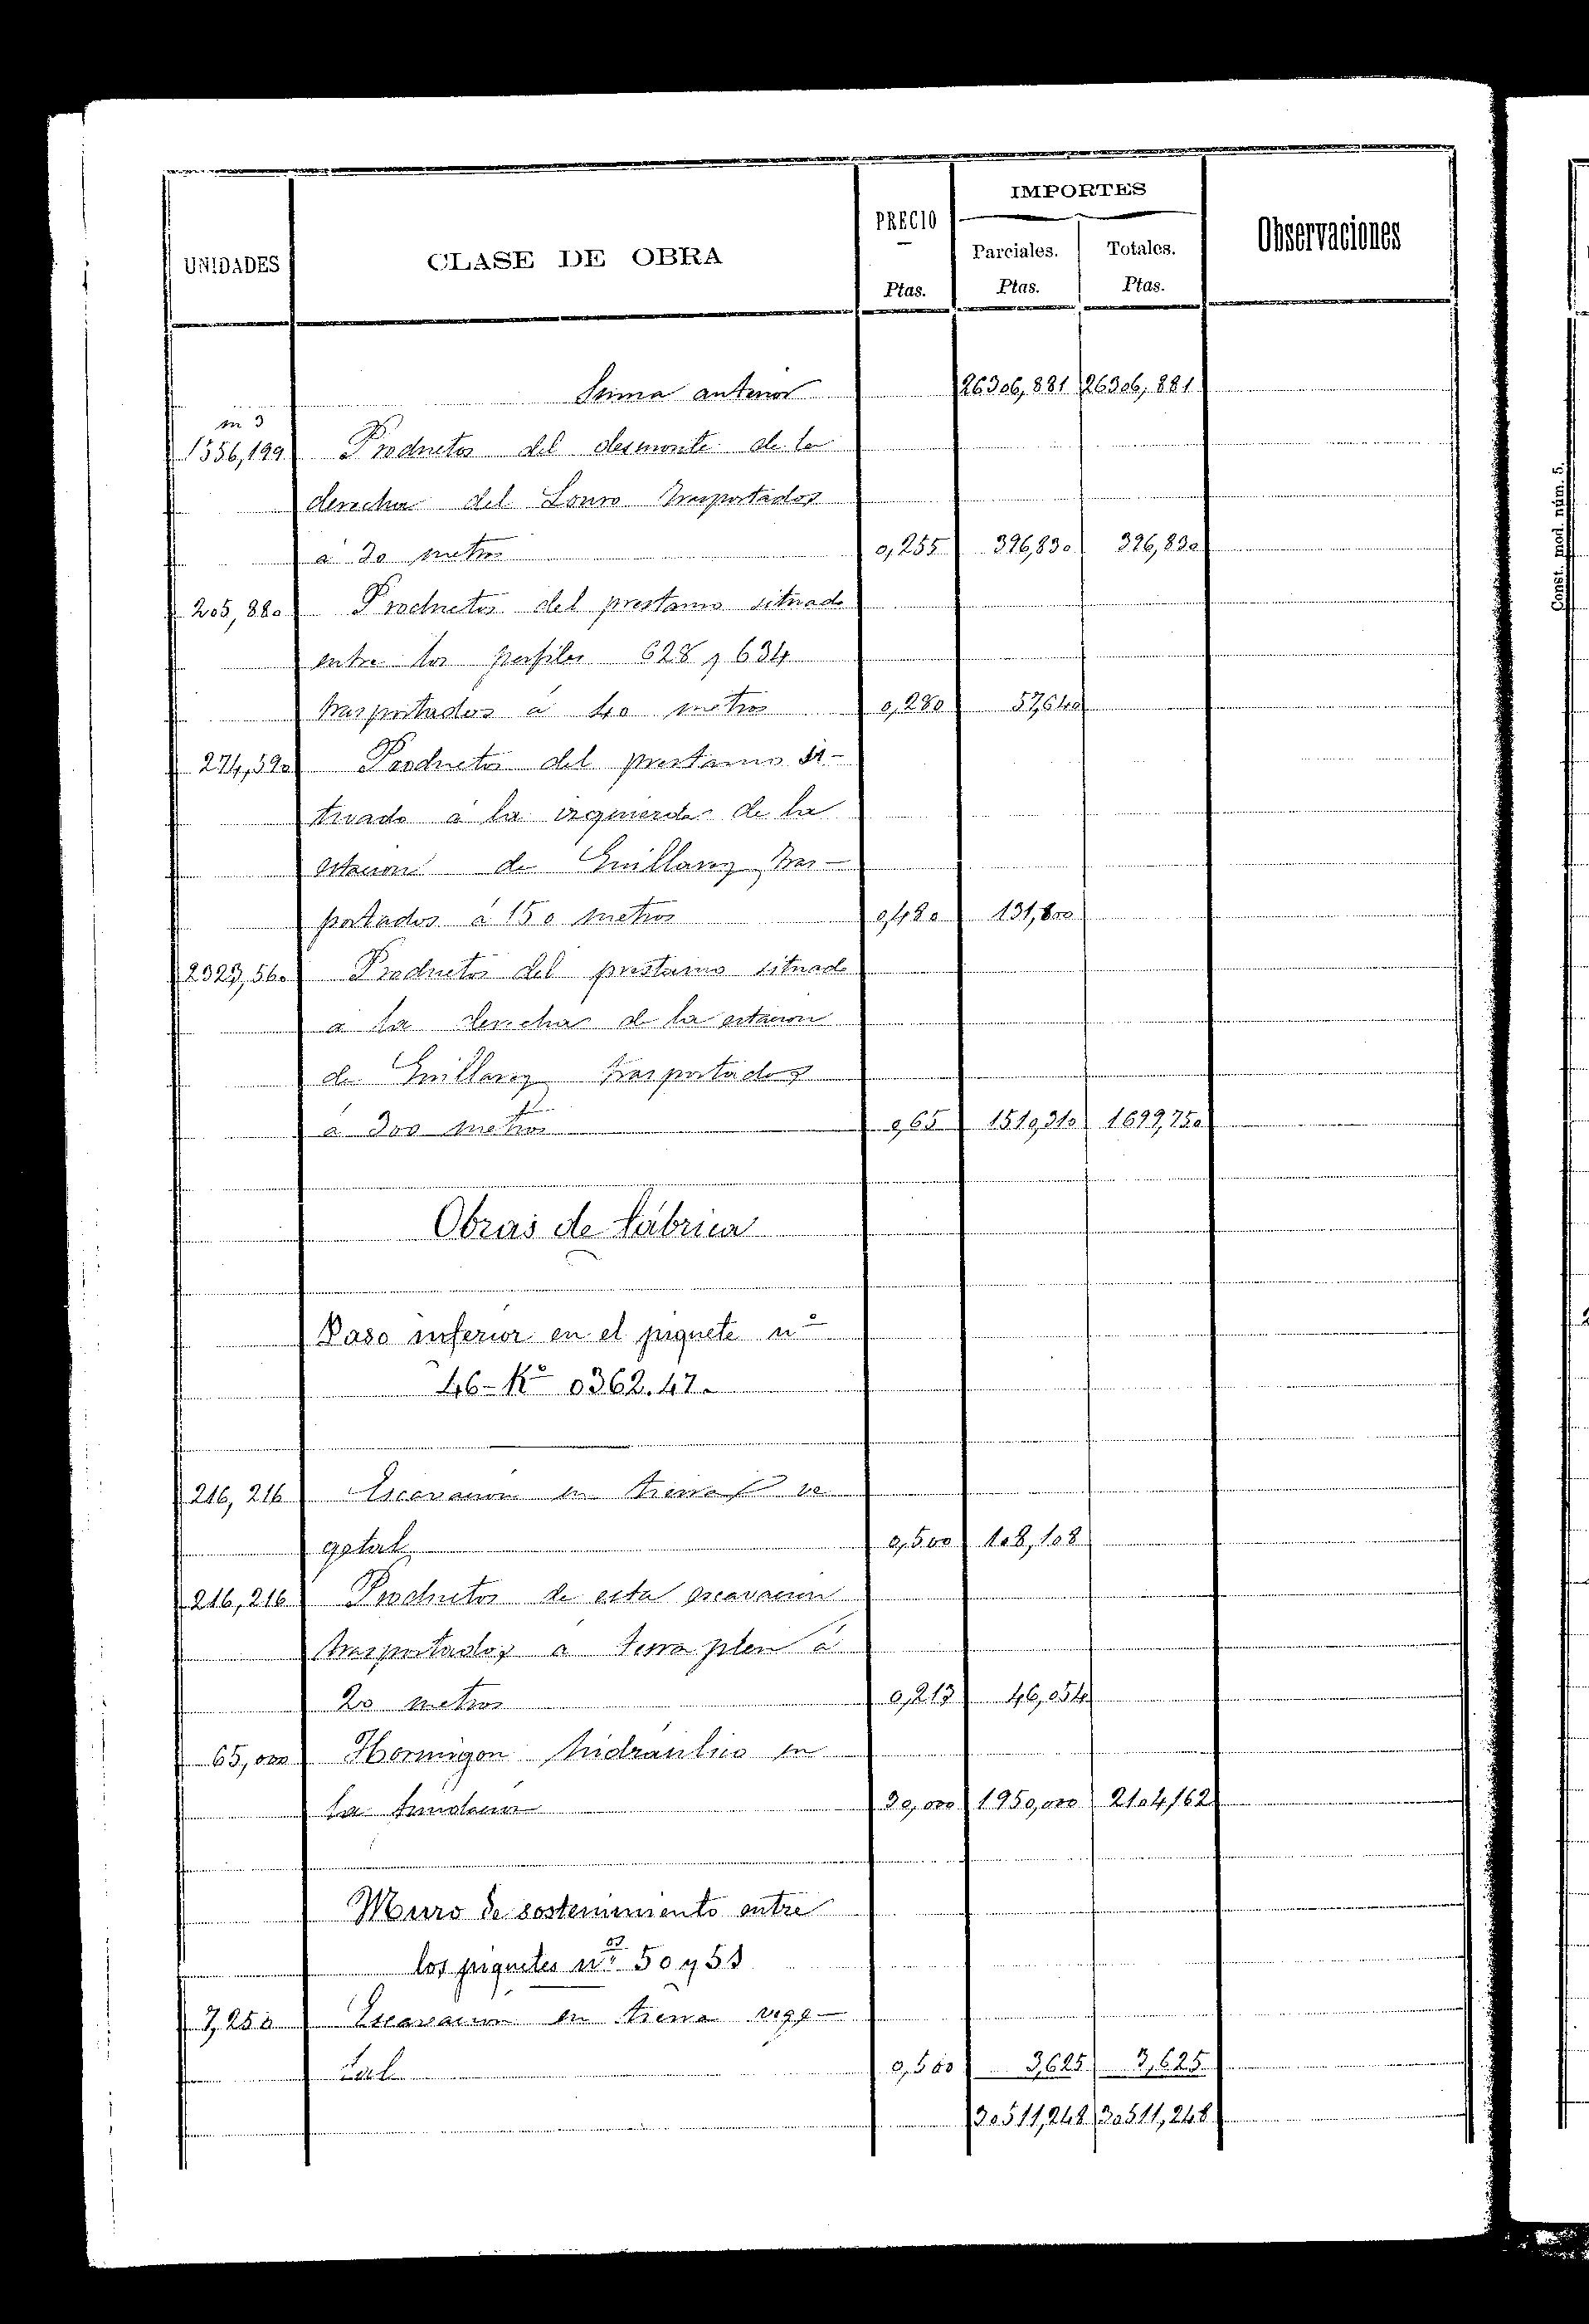 IMPORTES
UNIDADES CLASE DE OBRA PRECIO Parciales. Totales. Observaciones
Ptas. Ptas. Ptas.
Suma anterior 26306,881 26306,881
m 3
1556,199 Productos del desmonte de la
derecha del Louro trasportados
á 30 metros 0,255 396,830 396,830
205,880 Productos del prestamo situado
entre los perfiles 628 y 634
trasportados á 40 metros 0,280 57,640
274,590 Productos del prestamo si-
tuado á la izquierda de la
estacion de Guillarey tras-
portados á 150 metros 0,480 131,800
2323,560 Productos del prestamo situado
a la derecha de la estacion
de Guillarey trasportados
á 300 metros 0,65 1510,310 1699,750
Obras de fábrica
Paso inferior en el piquete nº
46-Kº 0362.47.
216,216 Escavacion en tierra ve
getal 0,500 108,108
216,216 Productos de esta escavacion
trasportados a terraplen á
20 metros 0,213 46,054
65,000 Hormigon hidráulico en
la fundacion 30,000 1950,000 2104,162
Muro de sostenimiento entre
los piquetes nos 50 y 53
7,250 Escavacion en tierra vege-
tal 0,500 3,625 3,625
30511,248 30511,248
Const. mod. núm. 5.